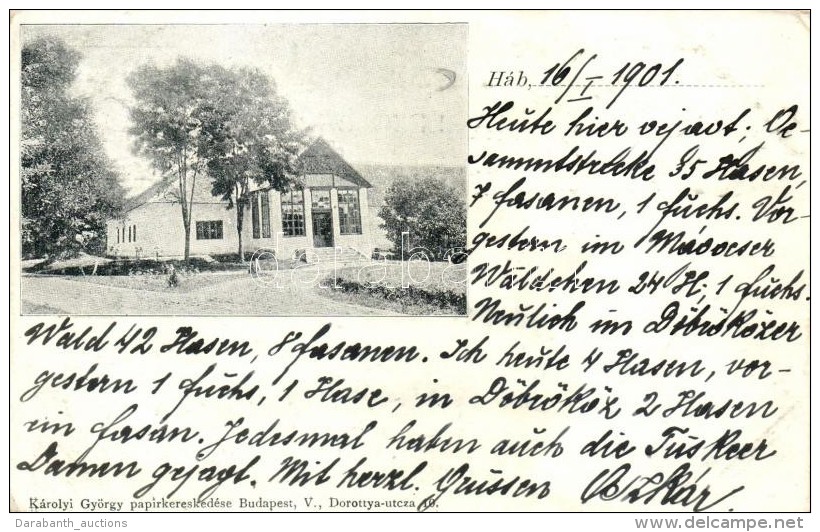 Háb, 16/I 1901.
Heute hier gejagt; Ge-
sammtstrecke 35 Hasen,
7 Fasanen, 1 Fuchs. Vor-
gestern im Mágocser
Wäldchen 24 H; 1 Fuchs.
Neulich im Döbröközer
Wald 42 Hasen, 8 Fasanen. Ich heute 4 Hasen, vor-
gestern 1 Fuchs, 1 Hase, in Döbrököz 2 Hasen
im Fasan. Jedesmal haben auch die Tüskeer
Damen gejagt. Mit herzl. Grüssen Oszkár
Károlyi György papirkereskedése Budapest, V., Dorottya-utcza 10.
darabanth
Darabanth_auctions
www.delcampe.net